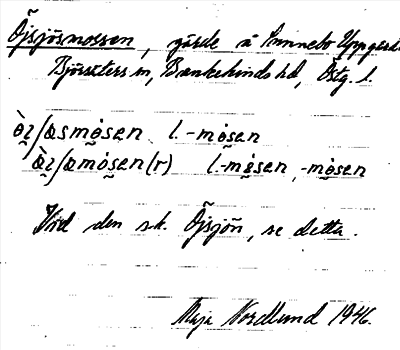 Öjsjösmossen, gärde å Sunnebo Uppgård
Björsäters sn, Bankekinds hd, Östg. l.
òʒ̬ʃæsmo̬sen l. -mo̬sen
àʒ̬ʃæmo̬sen(r) l. -mo̬sen, -mo̬sen
Vid den s.k. Öjsjön, se detta.
Maja Nordlund 1946.